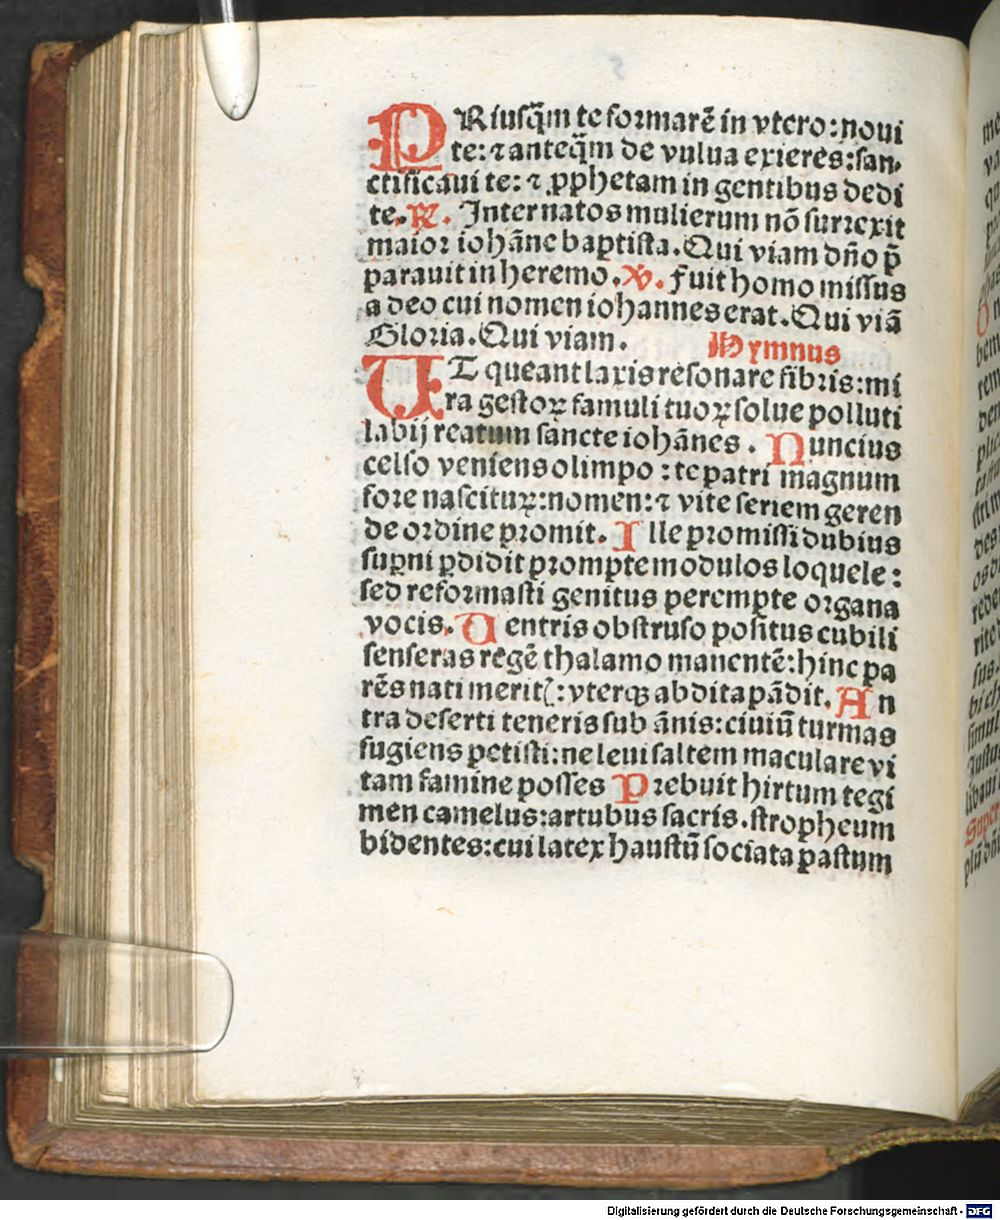 PRiusq̄m te formarē in vtero: noui
te: ⁊ anteq̄m de vulua exieres: san-
ctificaui te: ⁊ ꝓphetam in gentibus dedi
te. ℟. Inter natos mulierum nō surrexit
maior iohāne baptista. Qui viam dn̄o p̄
parauit in heremo. ℣. Fuit homo missus
a deo cui nomen iohannes erat. Qui viā
Gloria. Qui viam. Hymnus
UT queant laxis resonare fibris: mi
ra gestoꝝ famuli tuoꝝ solue polluti
labij reatum sancte iohānes. Nuncius
celso veniens olimpo: te patri magnum
fore nasciturꝝ: nomen: ⁊ vite seriem geren
de ordine promit. Ille promissi dubius
suꝑni ꝑdidit prompte modulos loquele:
sed reformasti genitus perempte organa
vocis. Uentris obstruso positus cubili
senseras regē thalamo manentē: hinc pa
rēs nati meritꝭ: vterqꝫ abdita pādit. An
tra deserti teneris sub ānis: ciuiū turmas
fugiens petisti: ne leui saltem maculare vi
tam famine posses Prebuit hirtum tegi
men camelus: artubus sacris. stropheum
bidentes: cui latex haustū sociata pastum
Digitalisierung gefördert durch die Deutsche Forschungsgemeinschaft - DFG